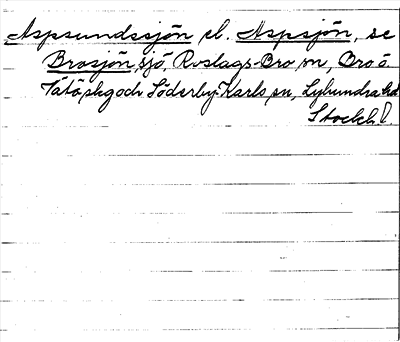 Aspsundssjön el. Aspsjön, se
Brosjön, sjö, Roslags-Bro sn, Bro o.
och Söderby-Karls sn, Lyhundra hd
Stockh. l.